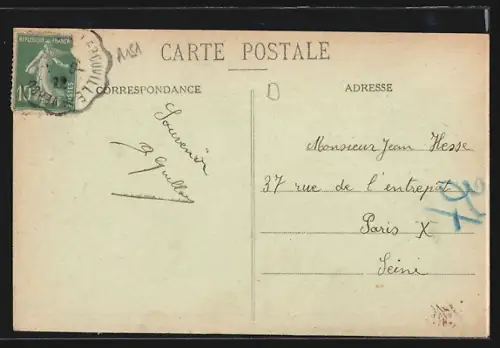 REPUBLIQUE FRANÇAISE
10
POSTES
CARTE POSTALE
CORRESPONDANCE
ADRESSE
D
Souvenir
Monsieur Jean Hesse
37 rue de l'entrepôt
Paris X
Seine